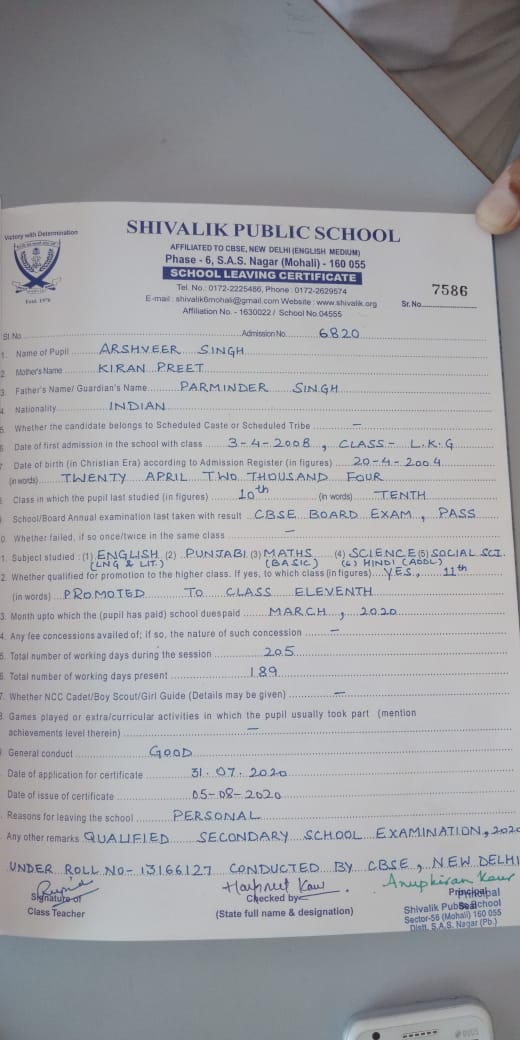 Victory with Determination
Estd. 1970
SHIVALIK PUBLIC SCHOOL
AFFILIATED TO CBSE, NEW DELHI (ENGLISH MEDIUM)
Phase - 6, S.A.S. Nagar (Mohali) - 160 055
SCHOOL LEAVING CERTIFICATE
Tel. No.: 0172-2225486, Phone : 0172-2629574
E-mail : shivalik6mohali@gmail.com Website : www.shivalik.org
Affiliation No. - 1630022 / School No.04555
Sr. No. 7586
Sl. No. Admission No. 6820
1. Name of Pupil ARSHVEER SINGH
2. Mother's Name KIRAN PREET
3. Father's Name/ Guardian's Name PARMINDER SINGH
4. Nationality INDIAN
5. Whether the candidate belongs to Scheduled Caste or Scheduled Tribe —
6 Date of first admission in the school with class 3-4-2008, CLASS - L.K.G
7 Date of birth (in Christian Era) according to Admission Register (in figures) 20-4-2004
(in words) TWENTY APRIL TWO THOUSAND FOUR
8 Class in which the pupil last studied (in figures) 10th (in words) TENTH
9 School/Board Annual examination last taken with result CBSE BOARD EXAM, PASS
0. Whether failed, if so once/twice in the same class —
1. Subject studied : (1) ENGLISH (2) PUNJABI (3) MATHS (4) SCIENCE (5) SOCIAL SCI.
(LNG & LIT.) (BASIC) (6) HINDI (ADDL)
2. Whether qualified for promotion to the higher class. If yes, to which class (in figures) YES, 11th
(in words) PROMOTED TO CLASS ELEVENTH
3. Month upto which the (pupil has paid) school dues paid MARCH, 2020
4. Any fee concessions availed of; if so, the nature of such concession —
5. Total number of working days during the session 205
6. Total number of working days present 189
7. Whether NCC Cadet/Boy Scout/Girl Guide (Details may be given) —
8. Games played or extra/curricular activities in which the pupil usually took part (mention
achievements level therein) —
General conduct GOOD
Date of application for certificate 31.07.2020
Date of issue of certificate 05-08-2020
Reasons for leaving the school PERSONAL
Any other remarks QUALIFIED SECONDARY SCHOOL EXAMINATION, 2020
UNDER ROLL NO- 13166127 CONDUCTED BY CBSE, NEW DELHI
Harpreet Kaur Anupkiran Kaur
Signature of
Class Teacher
Checked by
(State full name & designation)
Principal
Seal
Principal
Shivalik Public School
Sector-56 (Mohali) 160 055
Distt. S.A.S. Nagar (Pb.)
DUOS